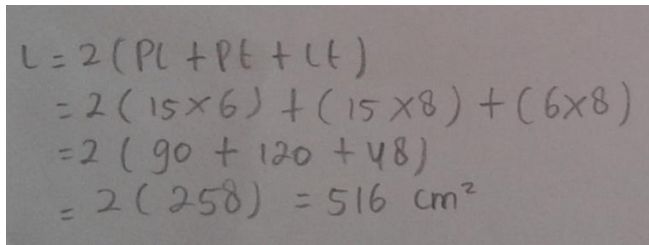 L = 2 (Pl + Pt + lt)
= 2 ( 15 × 6 ) + ( 15 × 8 ) + ( 6 × 8 )
= 2 ( 90 + 120 + 48 )
= 2 ( 258 ) = 516 cm²